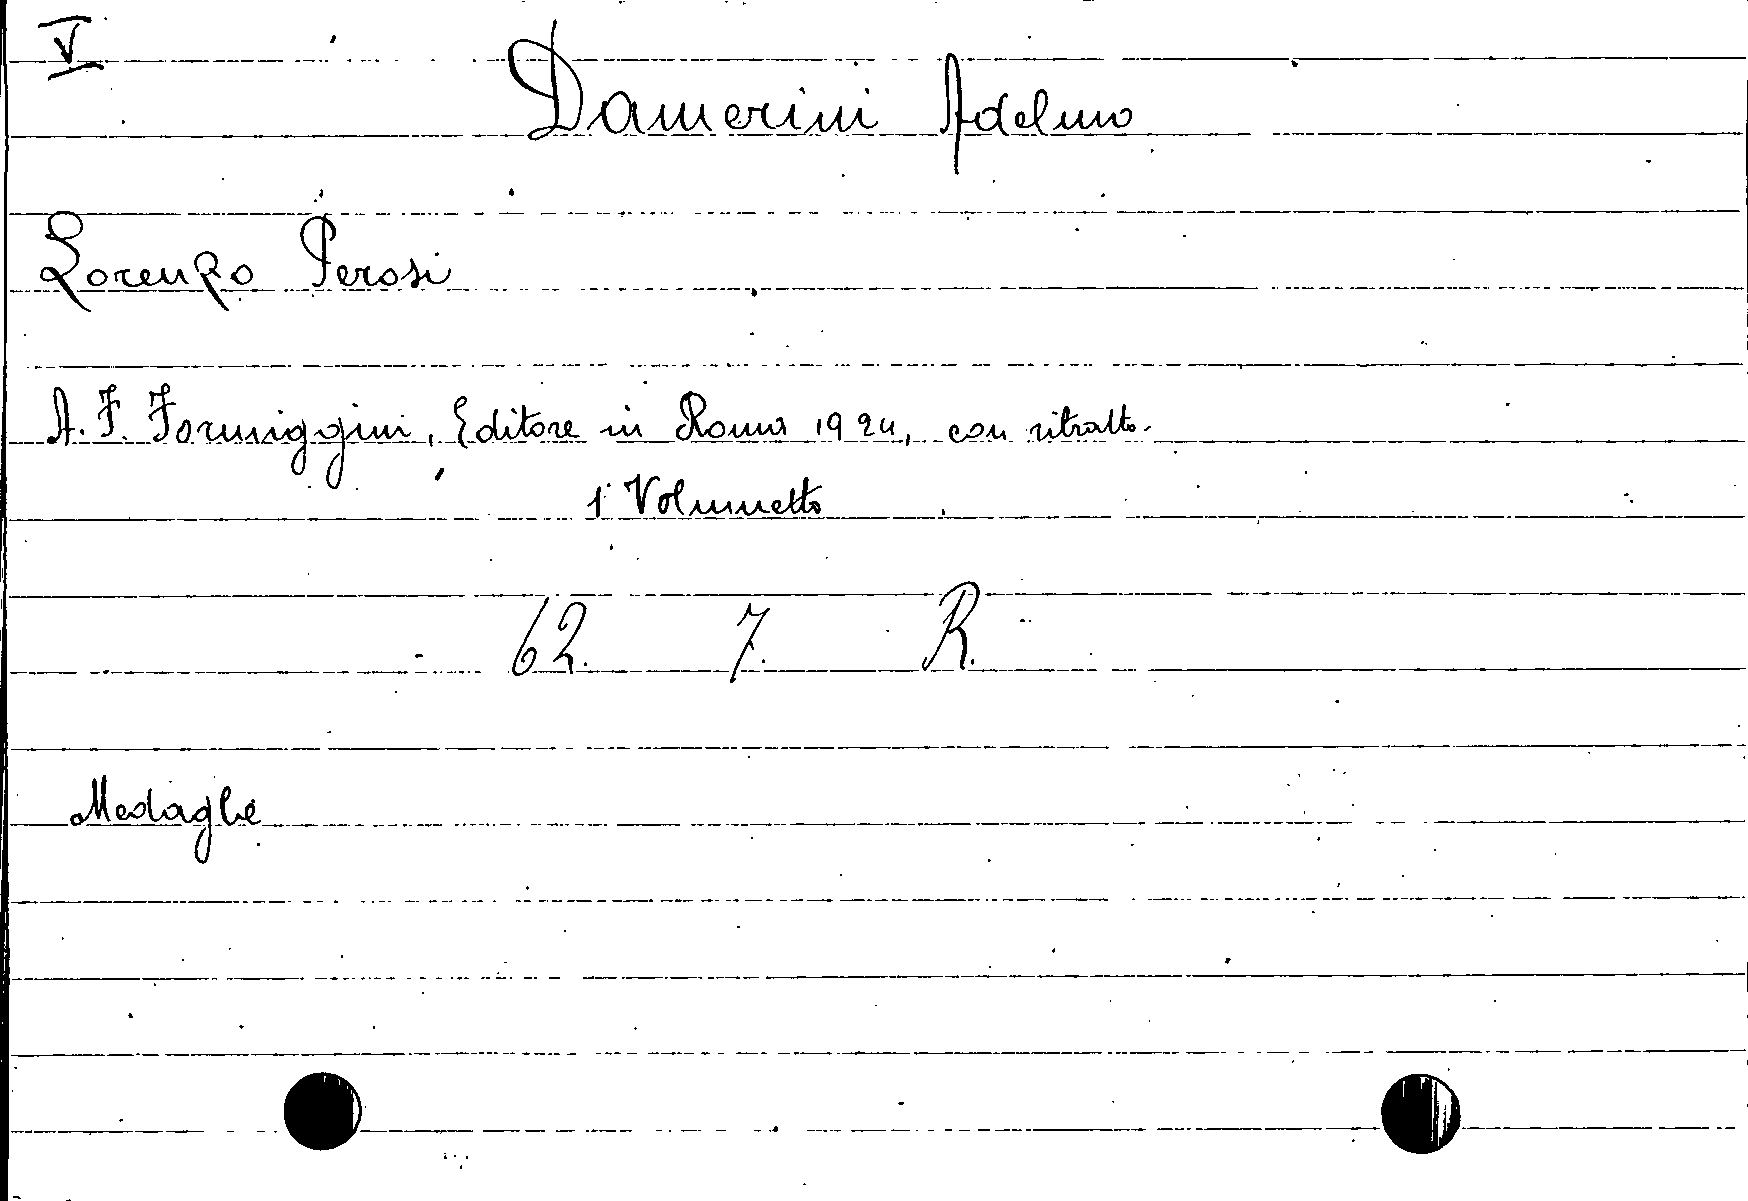 V
Damerini Adelmo
Lorenzo Perosi
A. F. Formiggini, Editore in Roma 1924, con ritratto.
1 Volumetto
62. 7. R.
Medaglie